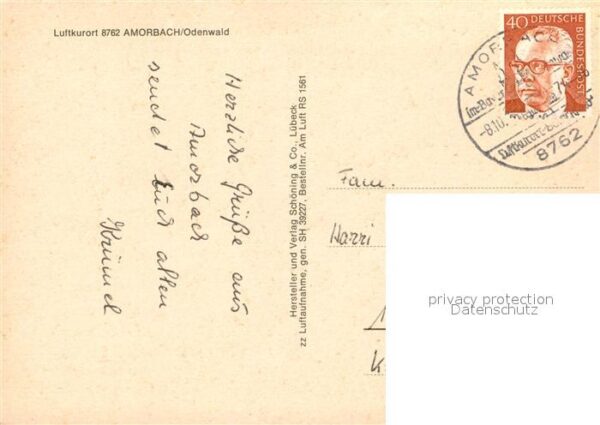 Luftkurort 8762 AMORBACH/Odenwald
Herzliche Grüße aus
Amorbach
sendet Euch allen
Krümel
Hersteller und Verlag Schöning & Co., Lübeck
zz Luftaufnahme, gen. SH 39227, Bestellnr. Am Luft RS 1561
40 DEUTSCHE
BUNDESPOST
AMORBACH
-8.10.
8762
Fam.
Harri
privacy protection
Datenschutz